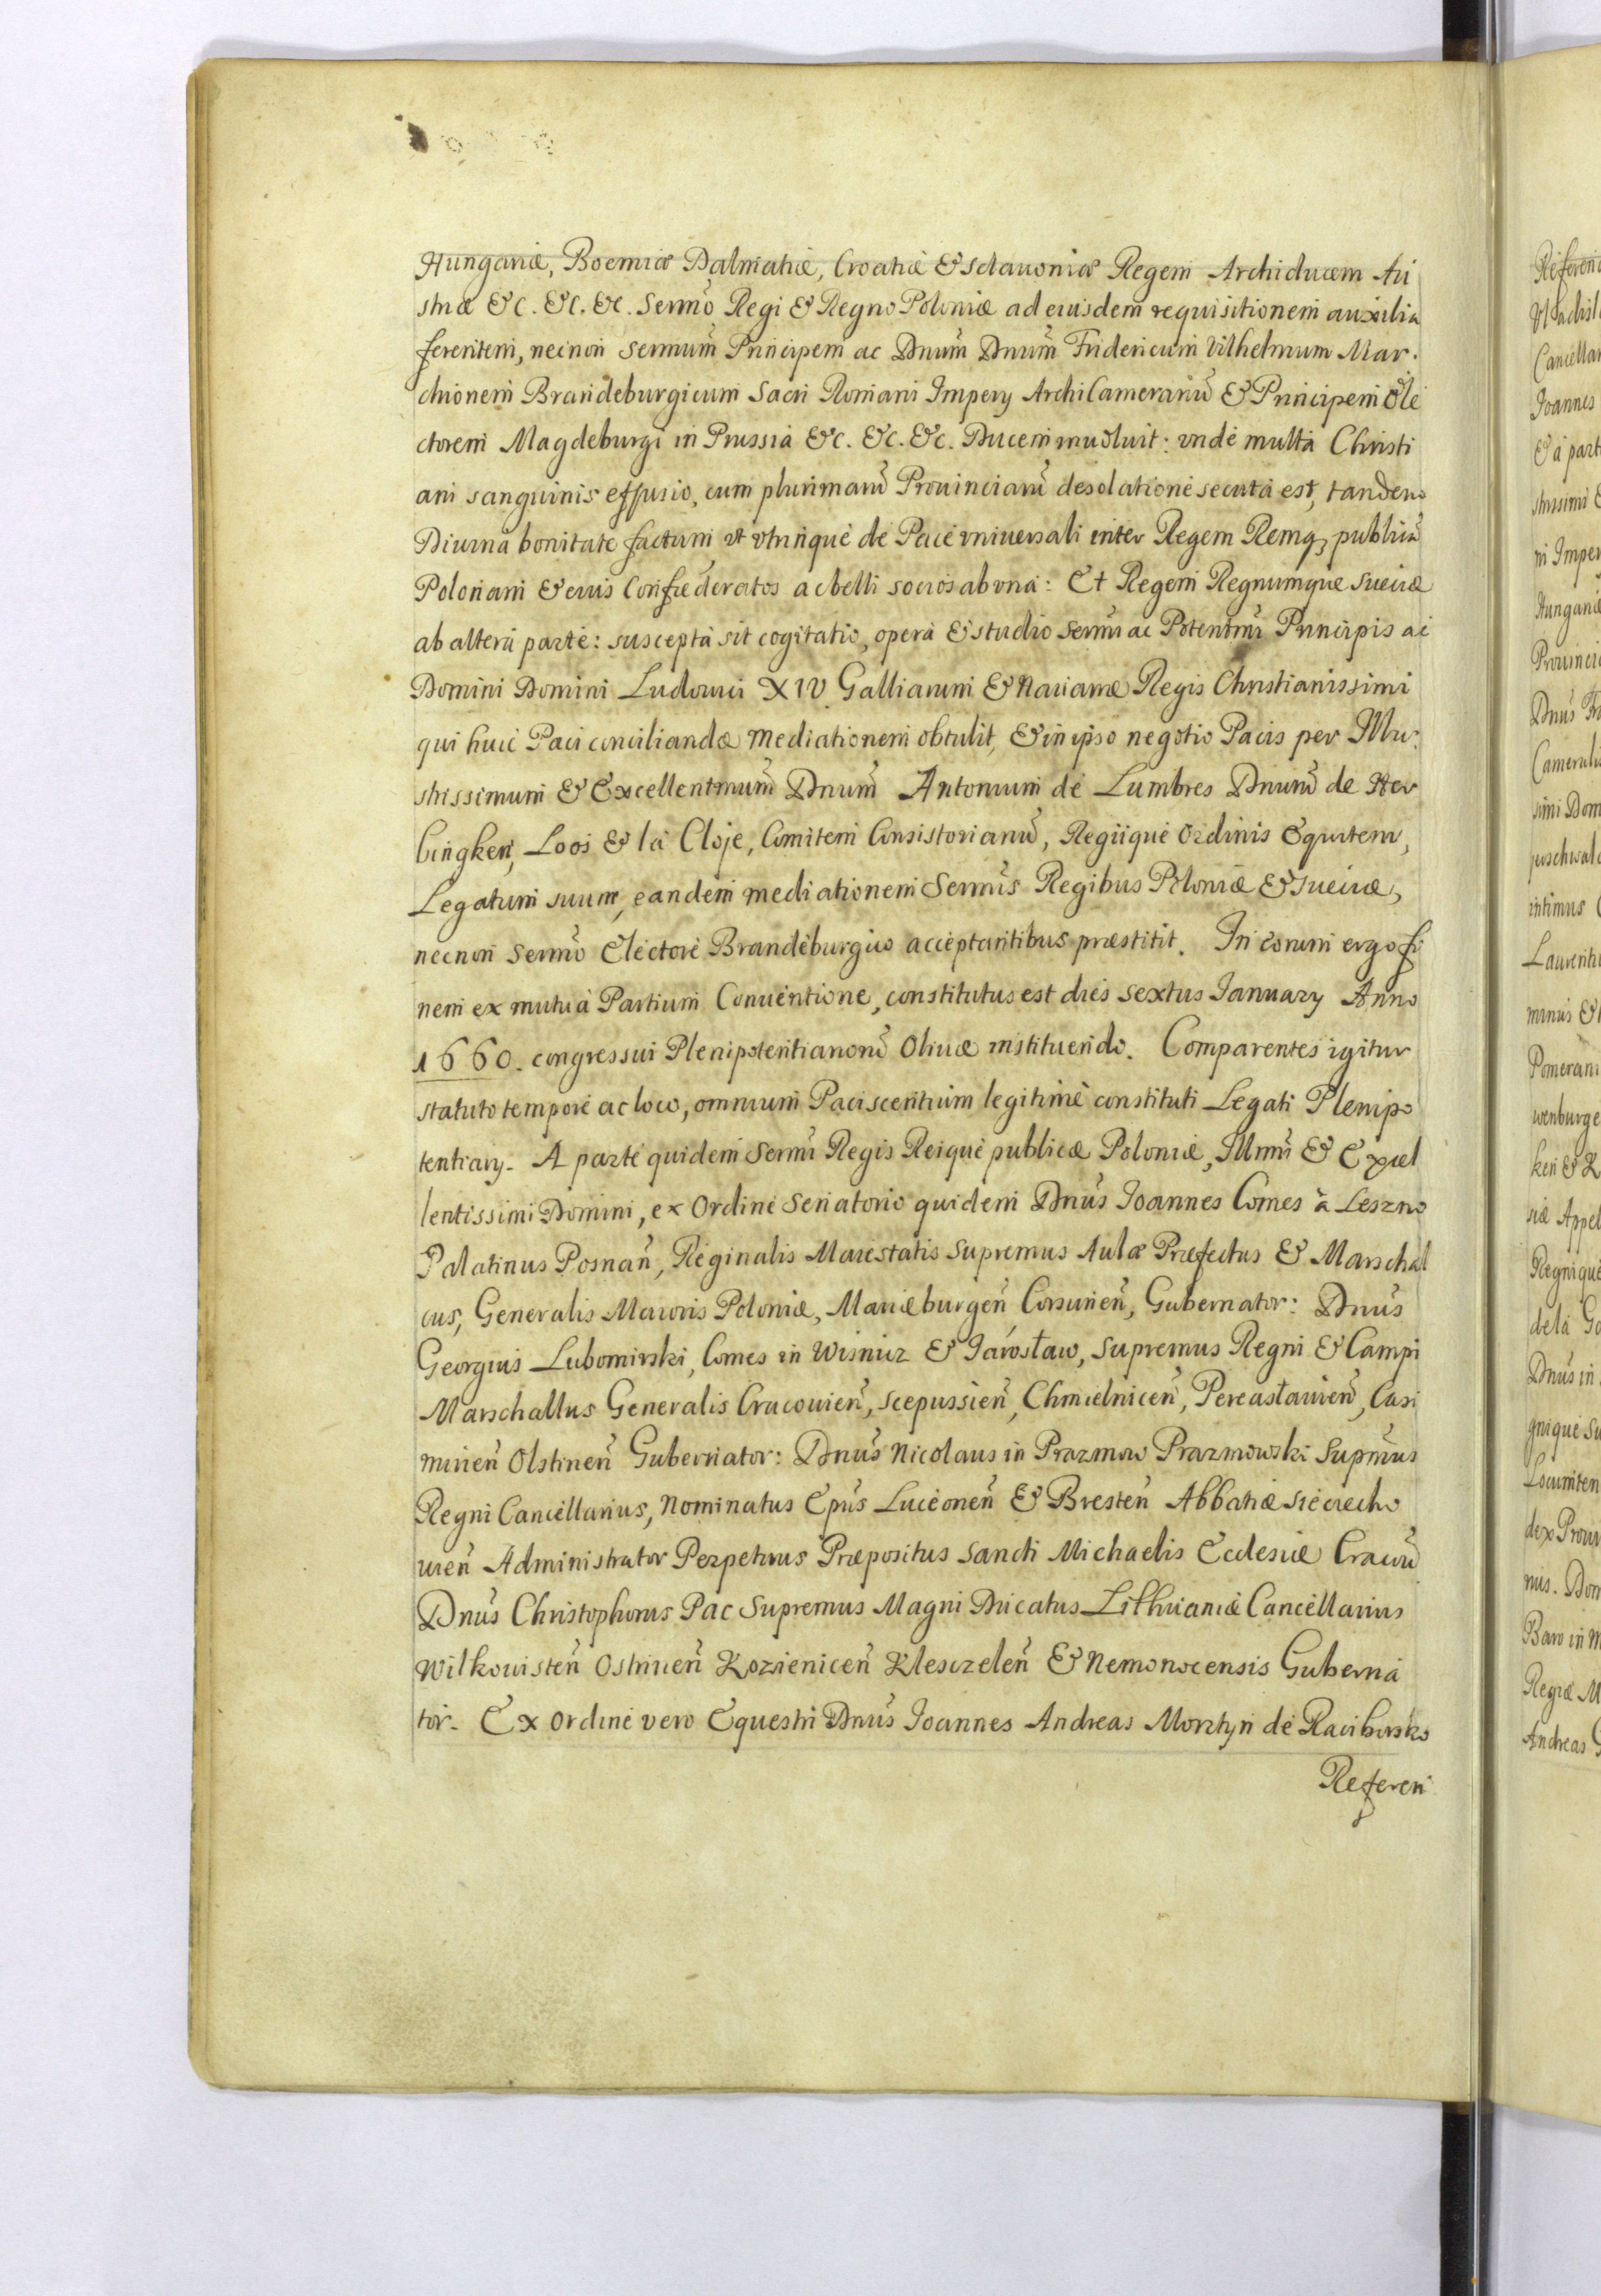 Hungariæ, Boemiæ Dalmatiæ, Croatiæ & Sclauoniæ Regem Archiducem Au
striæ &c. &c. &c. Sermõ Regi & Regno Poloniæ ad eiusdem requisitionem auxilia
ferentem, necnon Sermum̃ Principem ac Dnum̃ Dnum̃ Fridericum Vilhelmum Mar.
chionem Brandeburgicum Sacri Romani Impery ArchiCamerariũ & Principem Ele
ctorem Magdeburgi in Prussia &c. &c. &c. Ducem inuoluit: vnde multa Christi
ani sanguinis effusio, cum plurimarũ Prouinciarũ desolatione secuta est, tandem
Diuina bonitate factum vt vtrinque de Pace vniuersali inter Regem Remq, publicã
Polonam & eius Confæderatos ac belli socios ab vna: Et Regem Regnumque Sueciæ
ab altera parte: suscepta sit cogitatio, opera & studio Sermi ac Potentmi Principis ac
Domini Domini Ludouici XIV. Galliarum & Nauarræ Regis Christianissimi
qui huic Paci conciliandæ Mediationem obtulit, & in ipso negotio Pacis per Illu:
strissimum & Excellentmum̃ Dnum̃ Antonium de Lumbres Dnum̃ de Her
bingken, Loos & la Cloje, Comitem Consistorianũ, Regiique Ordinis Equitem,
Legatum suum, eandem mediationem Sermis̃ Regibus Poloniæ & Sueciæ,
necnon Sermõ Electore Brandeburgico acceptantibus præstitit. In eorum ergo fi
nem ex mutua Partium Conuentione, constitutus est dies sextus January Anno
1660. congressui Plenipotentiariorũ Oliuæ instituendo. Comparentes igitur
statuto tempore ac loco, omnium Paciscentium legitime constituti Legati Plenipo
tentiary. A parte quidem Sermi Regis Reique publicæ Poloniæ, Illmi & Excel
lentissimi Domini, ex Ordine Senatorio quidem Dnus̃ Joannes Comes à Leszno
Palatinus Posnañ, Reginalis Maiestatis Supremus Aulæ Præfectus & Marschal
cus, Generalis Maioris Poloniæ, Mariæburgeñ, Corsunieñ, Gubernator: Dnus̃
Georgius Lubomirski, Comes in Wisnicz & Jarosław, Supremus Regni & Campi
Marschallus Generalis Cracouieñ, Scepussieñ, Chmielniceñ, Pereasławieñ, Casi
mirieñ Olstineñ Gubernator: Dnus̃ Nicolaus in Prazmow Prazmowski Suprm̃us
Regni Cancellarius, Nominatus Epũs Luceoneñ & Bresteñ Abbatiæ Sieciecho
uieñ Administrator Perpetuus Præpositus Sancti Michaelis Ecclesiæ Cracoũ
Dnus̃ Christophorus Pac Supremus Magni Ducatus Lithuaniæ Cancellarius
Wilkouisteñ Ostrineñ Kozieniceñ Klesczeleñ & Nemonocensis Guberna
tor. Ex Ordine vero Equestri Dnus̃ Joannes Andreas Morztyn de Raciborsko
Referen